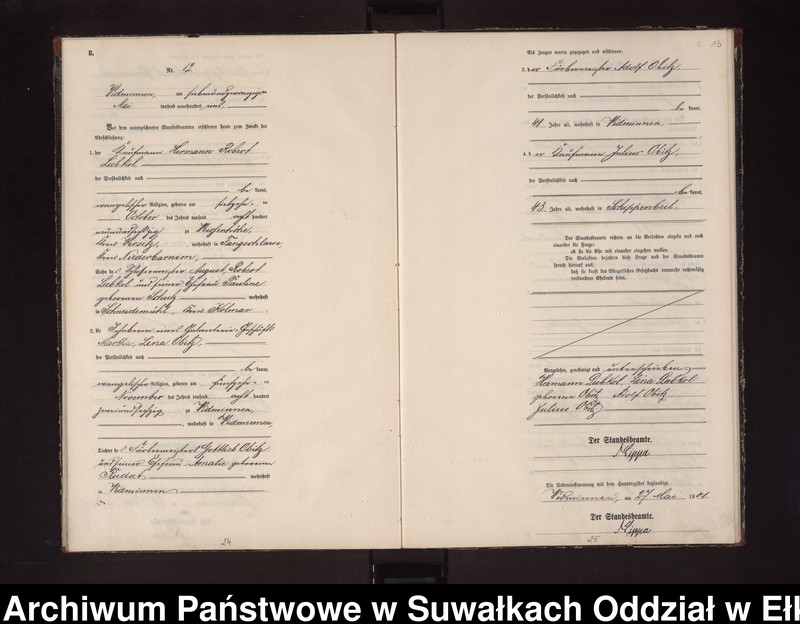 8.
Nr. 12.
Widminnen, am siebenundzwanzigsten
Mai tausend neunhundert eins.
Vor dem unterzeichneten Standesbeamten erschienen heute zum Zwecke der
Eheschließung:
1. der Kaufmann Hermann Robert
Lubkol
der Persönlichkeit nach
be kannt,
evangelischer Religion, geboren am
October des Jahres tausend acht hundert
zu
Kreis Wirsitz, wohnhaft in
Kreis Niederbarnim,
Sohn des August Robert
Lubkol und seiner Ehefrau Pauline
geborenen Schulz wohnhaft
in Schneidemühl, Kreis Kolmar
2. die Inhaberin eines Galanterie-Geschäfts
Martha, Lina Obitz,
der Persönlichkeit nach
be kannt,
evangelischer Religion, geboren am
November des Jahres tausend acht hundert
zweiundsechzig zu Widminnen,
, wohnhaft in Widminnen
Tochter des Färbermeisters Gottlieb Obitz
und seiner Ehefrau Amalie geborenen
wohnhaft
in Widminnen
24
13
Als Zeugen waren zugezogen und erschienen:
3. der Färbermeister Adolf Obitz,
der Persönlichkeit nach
be kannt,
41 Jahre alt, wohnhaft in Widminnen,
4. der Kaufmann Julius Obitz,
der Persönlichkeit nach
be kannt,
43 Jahre alt, wohnhaft in Schippenbeil.
Der Standesbeamte richtete an die Verlobten einzeln und nach
einander die Frage:
ob sie die Ehe mit einander eingehen wollen.
Die Verlobten bejahten diese Frage und der Standesbeamte
sprach hierauf aus,
daß sie kraft des Bürgerlichen Gesetzbuchs nunmehr rechtmäßig
verbundene Eheleute seien.
Vorgelesen, genehmigt und unterschrieben
Hermann Lubkol. Lina Lubkol
geborene Obitz Adolf Obitz.
Julius Obitz.
Der Standesbeamte.
Lyppa
Die Uebereinstimmung mit dem Hauptregister beglaubigt.
Widminnen, am 27 Mai 1901.
Der Standesbeamte.
Lyppa
25
Archiwum Państwowe w Suwałkach Oddział w Ełk